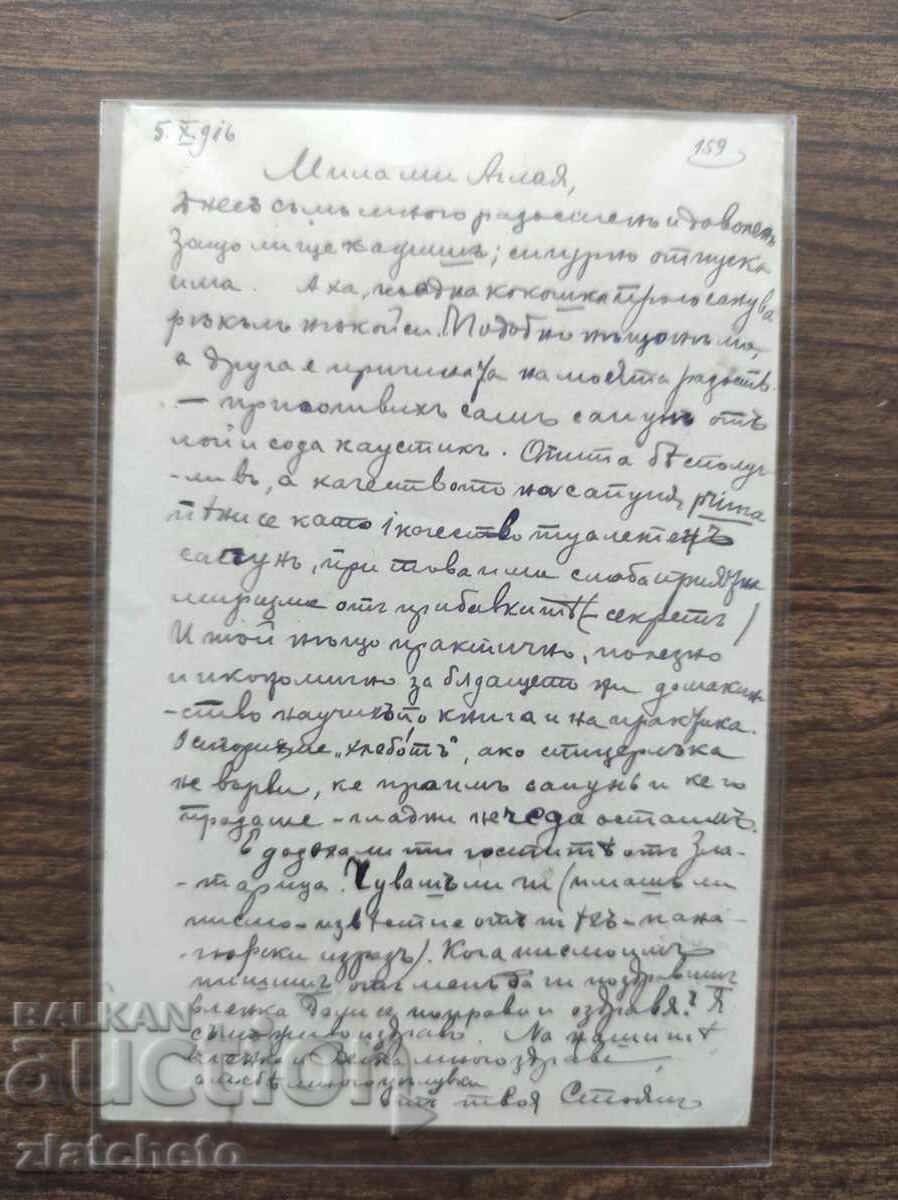 5.X.916
159
Мила ми Аглая,
Днесъ съмъ много радостенъ и доволенъ
Защо ли ще кажешъ; сигурно отпуска
има. Аха, гладна кокошка просо сънува
рѫкълъ нѣкой си. Подобно нѣщо нѣма,
а друга е причината на моята радость.
— приготвихъ самъ сапунъ отъ
лой и сода каустикъ. Опита бѣ сполуч
-ливъ, а качеството на сапуня prima
пѣни се като I качество тоалетенъ
сапунъ, при това има слаба приятна
миризма отъ прибавкитѣ (- секретъ)
И той нѣщо практично, полезно
и икономично за бѫдащето ни домакин
-ство научихъ по книга и на практика.
"хлебѫтъ", ако спицерлъка
не върви, ке праимъ сапунь и ке го
продаме - гладни не че да останемъ.
Додоха ли ти госпитѣ отъ Зла-
-тарица? Чувашъ ли ги (имашъ ли
писмо - известие отъ тѣхъ - пана-
-гюрски изразъ). Кога писмо имъ
пишишъ отъ менъ да ги поздравишъ
Ленка Дали се поправи и оздравя? Я
съмъ живо и здраво. На нашитѣ
всички и много здраве,
а на тебѣ много целувки
отъ твоя Стоянъ
BALKAN
auction
zlatcheto